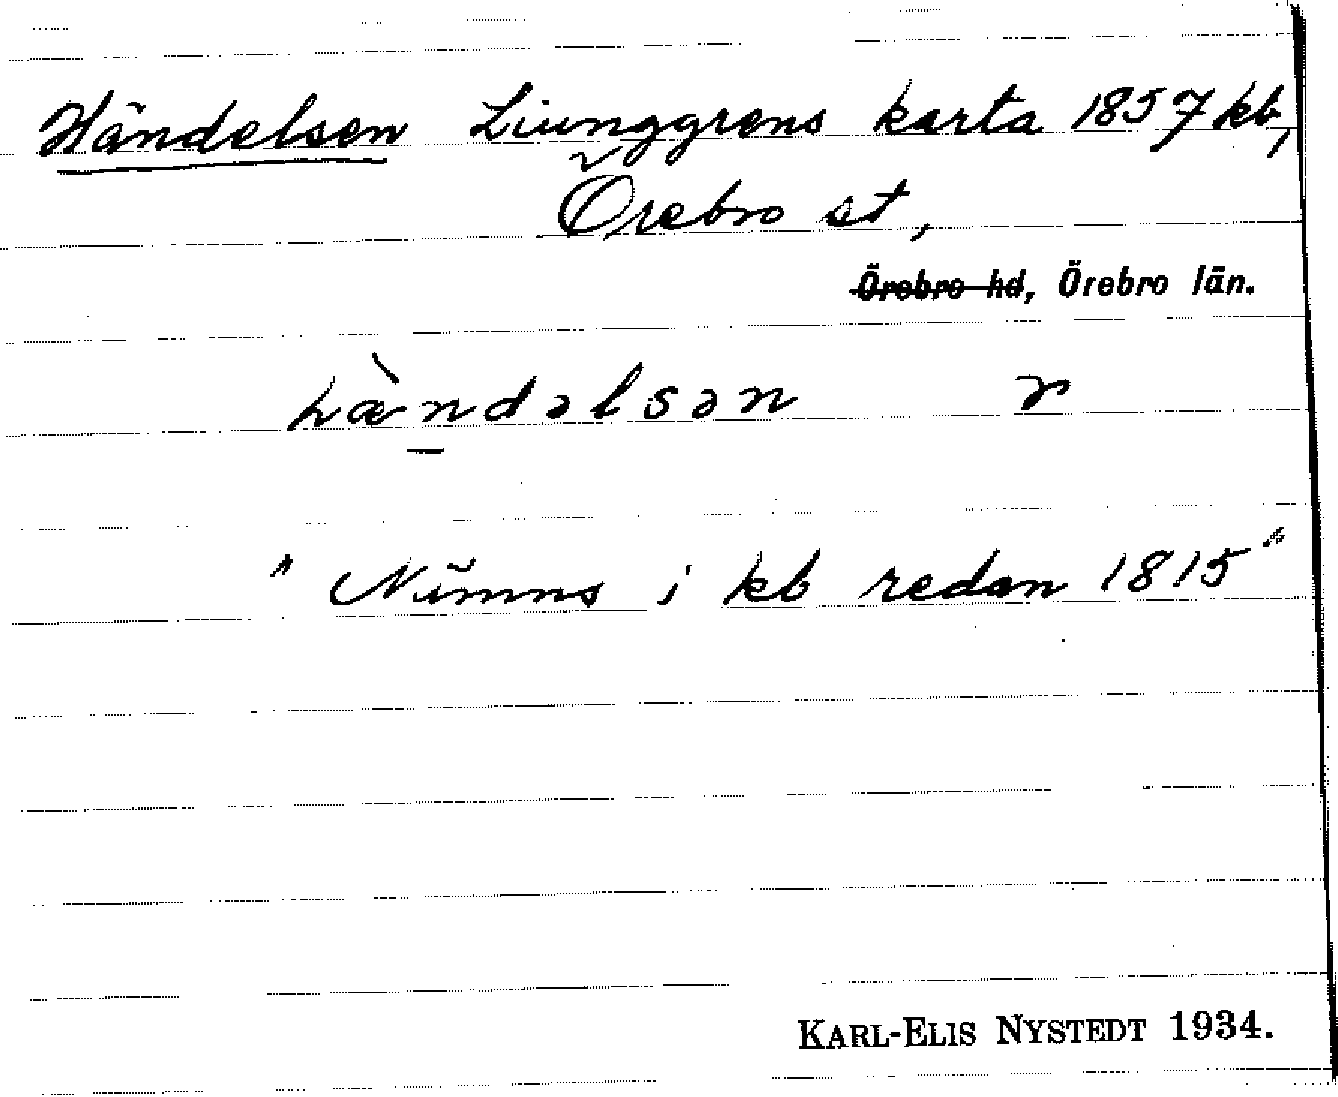 Händelsen Liunggrens karta 1857 kb,
Örebro st,
Örebro hd, Örebro län.
hæ̀ndəlsən r
" Nämns i kb redan 1815 "
KARL-ELIS NYSTEDT 1934.